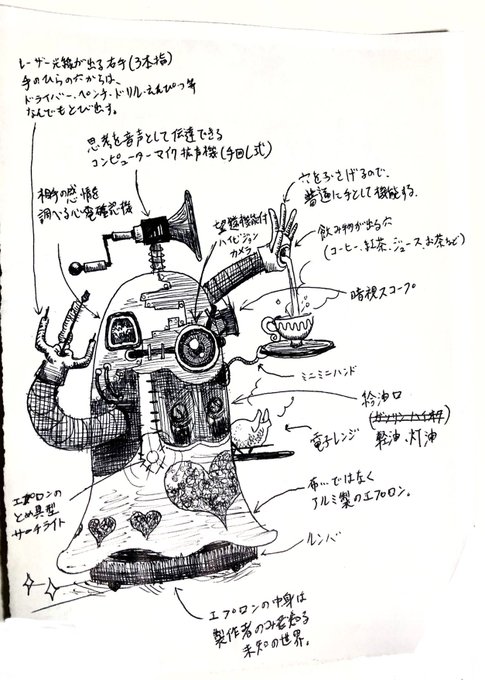 レーザー光線が出る右手(3本指)
手のひらの穴からは、
ドライバー・ペンチ・ドリル・えんぴつ等
なんでもとび出す。
思考を音声として伝達できる
コンピューターマイク拡声機(手回し式)
相手の感情を
調べる心電確認機
望遠機能付
ハイビジョン
カメラ
穴をふさげるので、
普通に手として機能する。
飲み物が出る穴
(コーヒー、紅茶、ジュース、お茶など)
暗視スコープ
ミニミニハンド
給油口
軽油、灯油
電子レンジ
エプロンの
とめ具型
サーチライト
布ではなく
アルミ製のエプロン。
ルンバ
エプロンの中身は
製作者のみぞ知る
未知の世界。